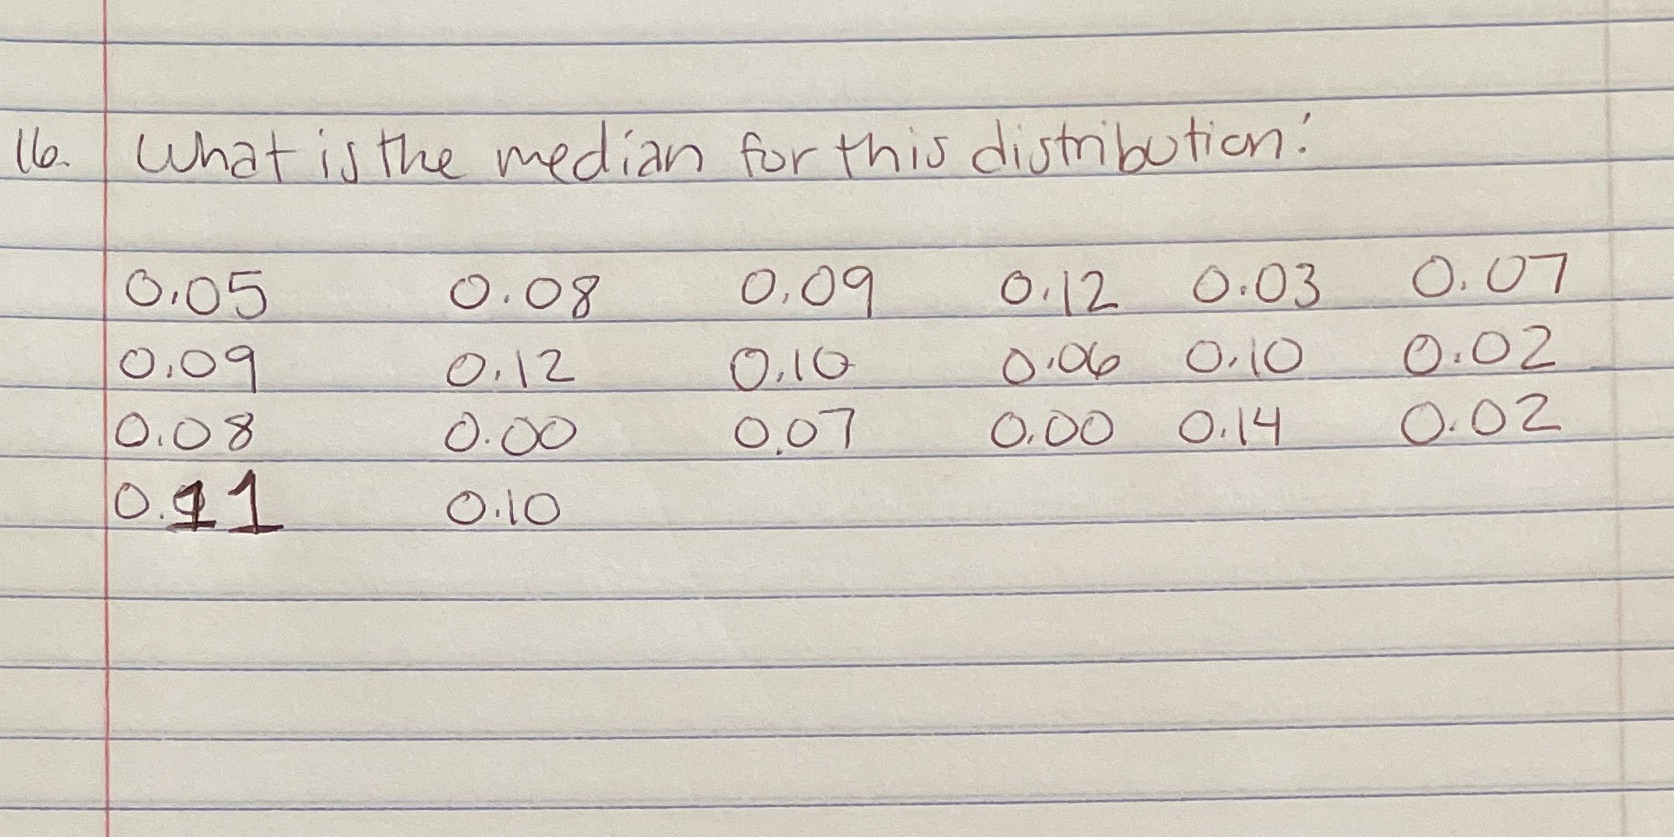 16. What is the median for this distribution:
0.05 0.08 0.09 0.12 0.03 0.07
0.09 0.12 0.10 0.06 0.10 0.02
0.08 0.00 0.07 0.00 0.14 0.02
0.11 0.10